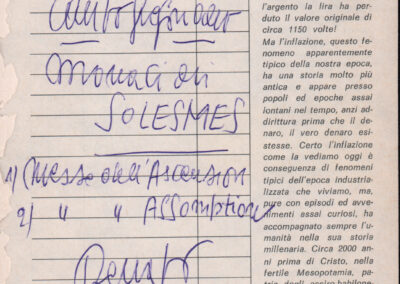 Monaci di
SOLESMES
1) Messe dell'Ascension
2) " " Assomption
l'argento la lira ha per-
duto il valore originale di
circa 1150 volte!
Ma l'inflazione, questo fe-
nomeno apparentemente
tipico della nostra epoca,
ha una storia molto più
antica e appare presso
popoli ed epoche assai
lontani nel tempo, anzi ad-
dirittura prima che il de-
naro, il vero denaro esi-
stesse. Certo l'inflazione
come la vediamo oggi è
conseguenza di fenomeni
tipici dell'epoca industria-
lizzata che viviamo, ma,
pure con episodi ed avve-
nimenti assai curiosi, ha
accompagnato sempre l'u-
manità nella sua storia
millenaria. Circa 2000 an-
ni prima di Cristo, nella
fertile Mesopotamia, pa-
tria degli assiro-babilone-